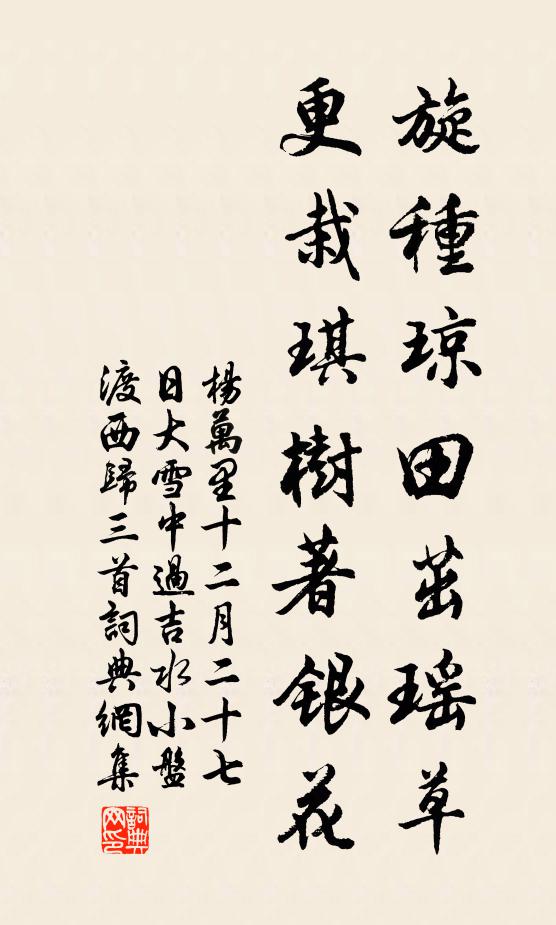 旋種琼田茁瑶草
更栽琪樹著銀花
楊萬里十二月二十七
日大雪中過吉水小盤
渡西歸三首詞典網集
詞典网印